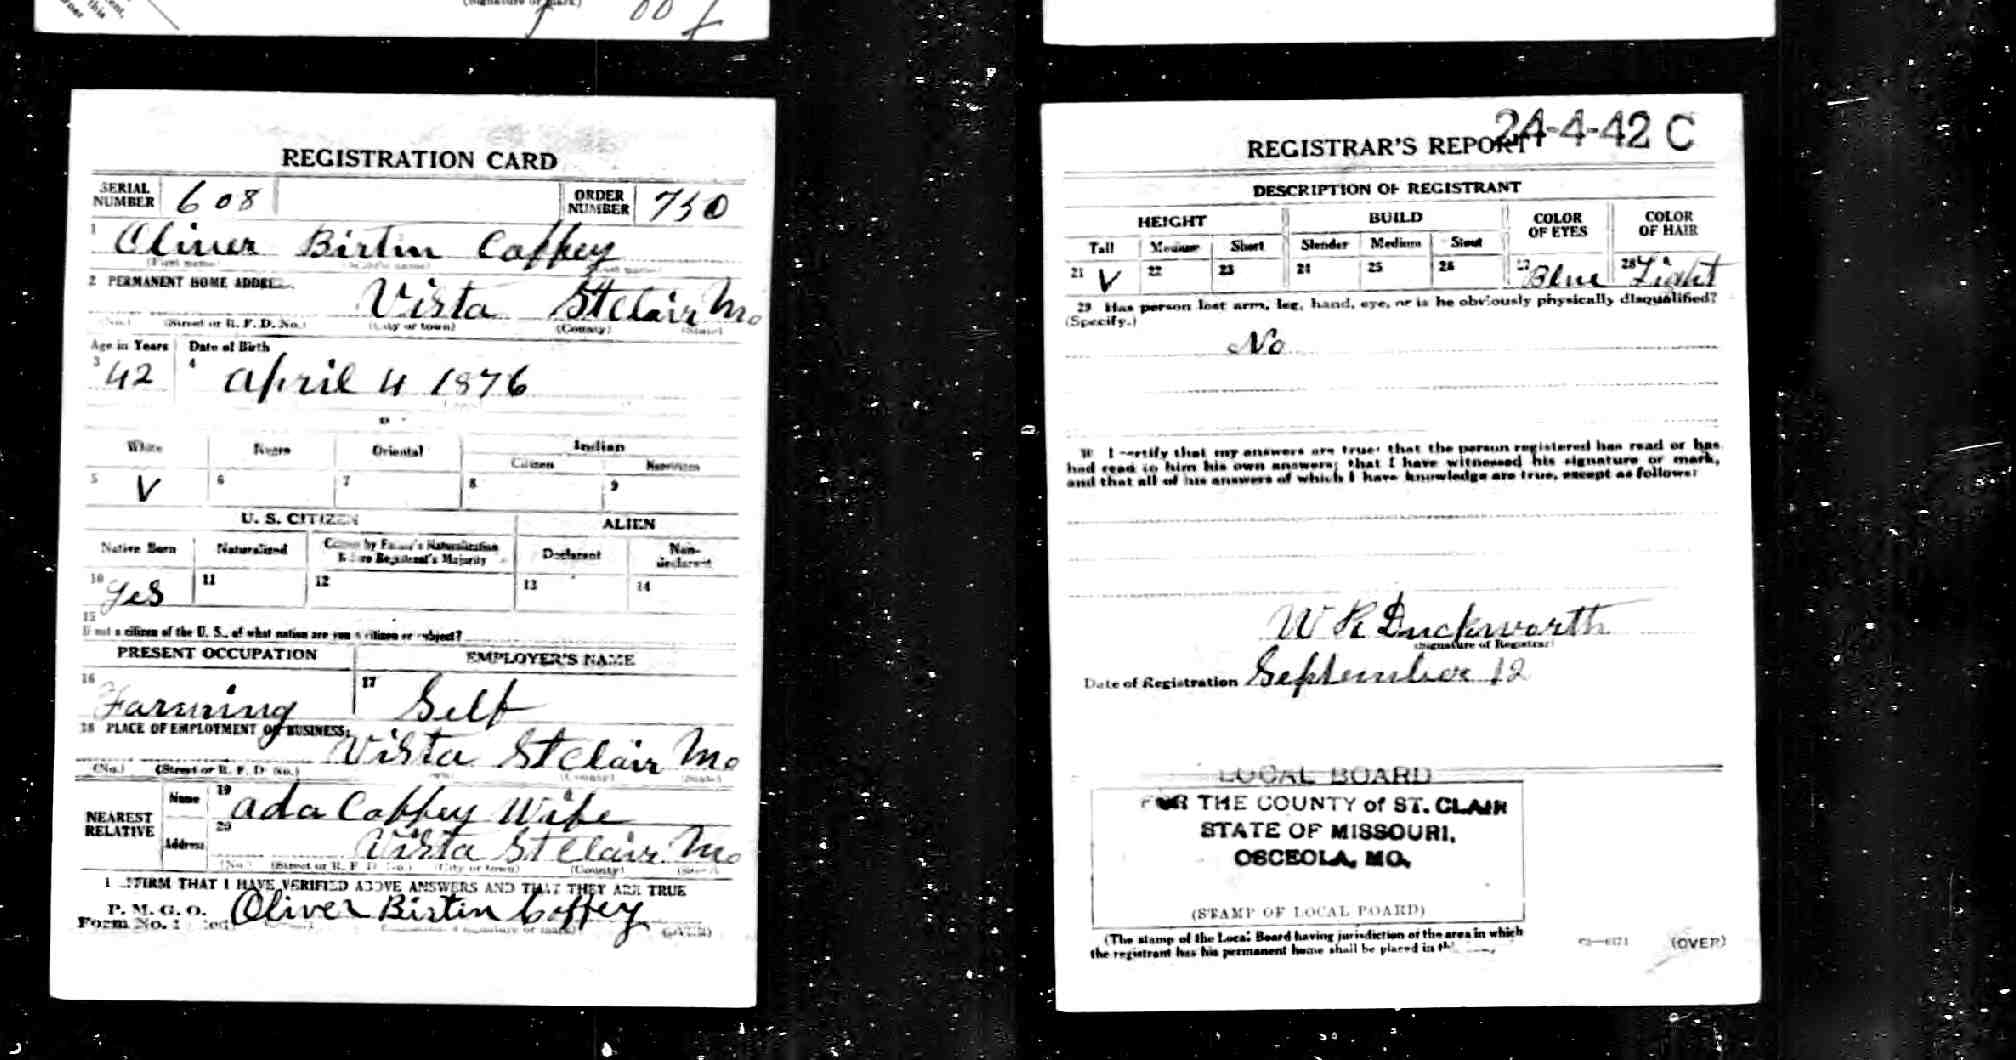 REGISTRATION CARD
SERIAL NUMBER 608 ORDER NUMBER 750
1 Oliver Birtin Coffey
2 PERMANENT HOME
Vista St Clair Mo
(No.) (Street or R. F. D. No.) (City or town) (County) (State)
Age in Years Date of Birth
3 42 4 April 4 1876
White Negro Oriental Indian
Citizen Noncitizen
5 V 6 7 8 9
U. S. CITIZEN ALIEN
Native Born Naturalized Citizen by Father's Naturalization Before Registrant's Majority Declarant Non-declarant
10 Yes 11 12 13 14
15
If not a citizen of the U. S., of what nation are you a citizen or subject?
PRESENT OCCUPATION EMPLOYER'S NAME
16 Farming 17 Self
18 PLACE OF EMPLOYMENT OR BUSINESS:
Vista St Clair Mo
(No.) (Street or R. F. D. No.) (County) (State)
NEAREST RELATIVE
Name 19 Ada Coffey Wife
Address 20 Vista St Clair Mo
(No.) (Street or R. F. D. No.) (City or town) (County) (State)
I AFFIRM THAT I HAVE VERIFIED ABOVE ANSWERS AND THAT THEY ARE TRUE
P. M. G. O.
Form No. 1 Oliver Birtin Coffey
(OVER)
24-4-42 C
REGISTRAR'S REPORT
DESCRIPTION OF REGISTRANT
HEIGHT BUILD COLOR OF EYES COLOR OF HAIR
Tall Medium Short Slender Medium Stout
21 V 22 23 24 25 26 27 Blue 28 Light
29 Has person lost arm, leg, hand, eye, or is he obviously physically disqualified?
(Specify.)
No
30 I certify that my answers are true; that the person registered has read or has
had read to him his own answers; that I have witnessed his signature or mark,
and that all of his answers of which I have knowledge are true, except as follows:
W R Duckworth
(Signature of Registrar)
Date of Registration September 12
LOCAL BOARD
FOR THE COUNTY of ST. CLAIR
STATE OF MISSOURI,
OSCEOLA, MO.
(STAMP OF LOCAL BOARD)
(The stamp of the Local Board having jurisdiction of the area in which
the registrant has his permanent home shall be placed in
(OVER)